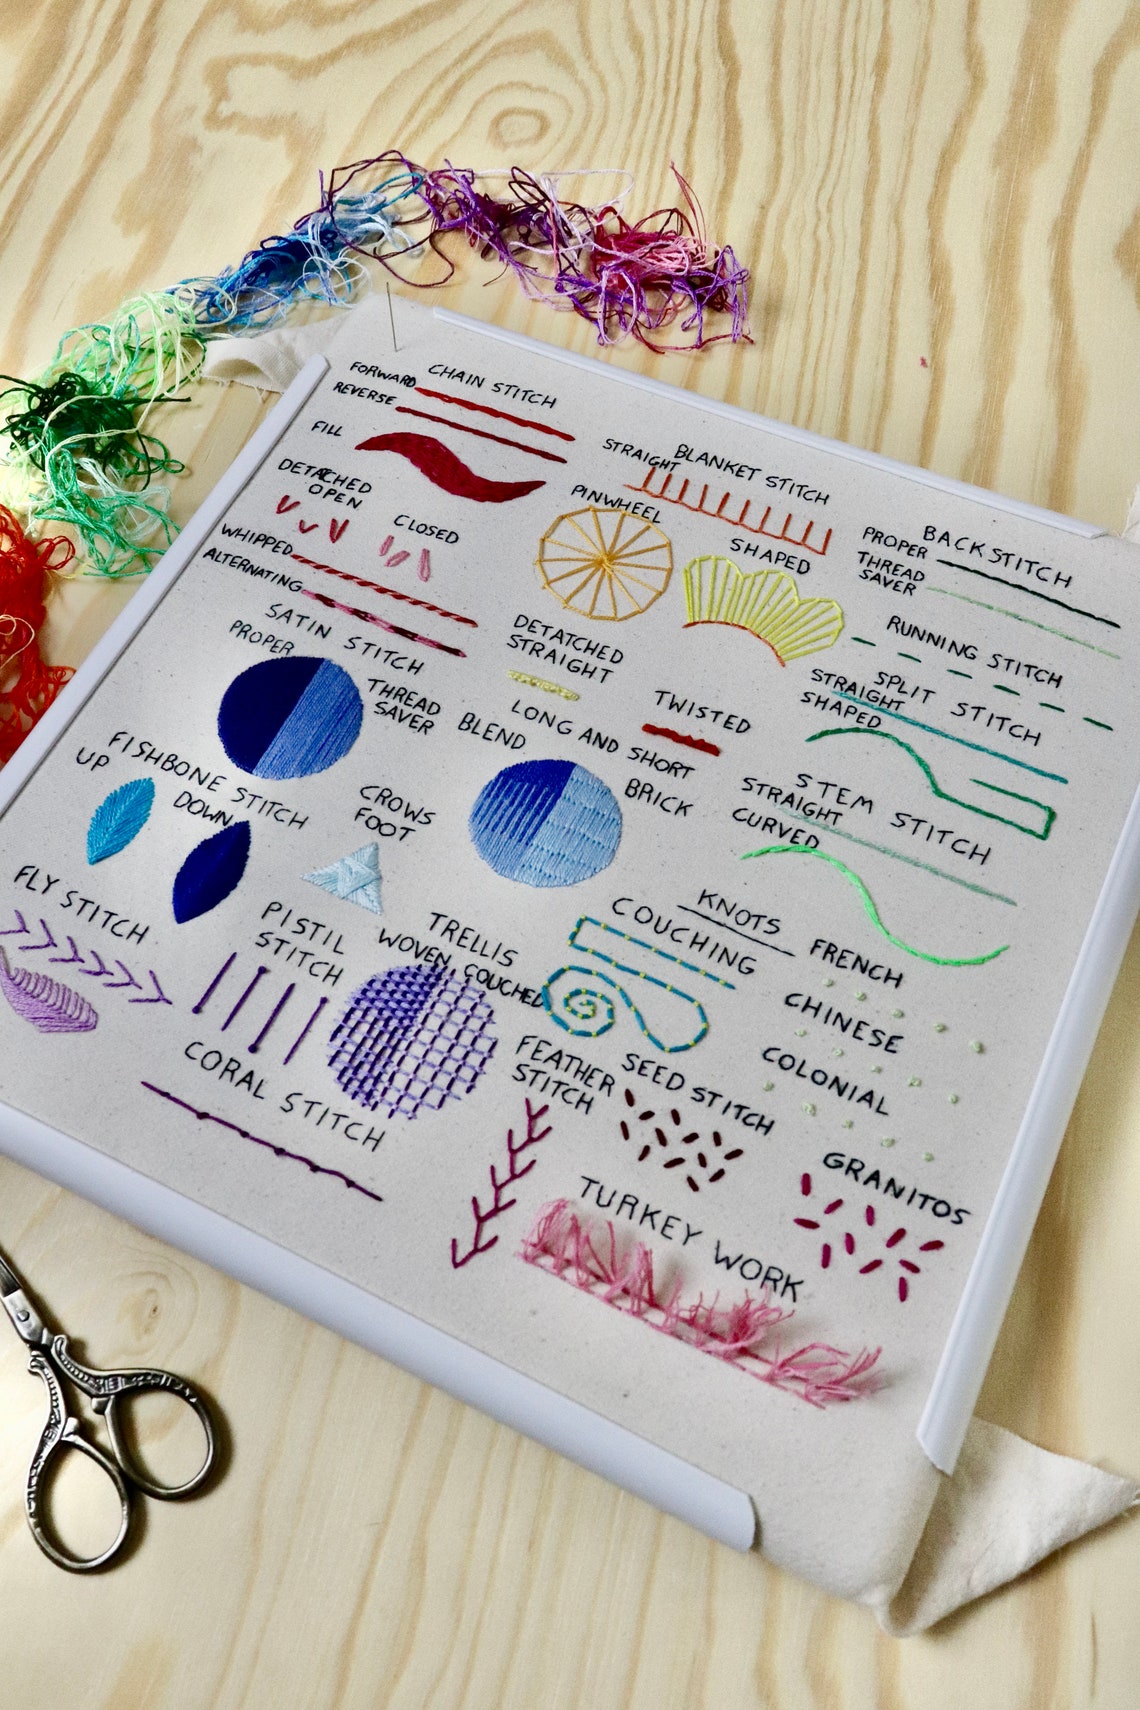 CHAIN STITCH
FORWARD
REVERSE
FILL
DETACHED
OPEN
CLOSED
WHIPPED
ALTERNATING
BLANKET STITCH
STRAIGHT
PINWHEEL
SHAPED
BACKSTITCH
PROPER
THREAD
SAVER
RUNNING STITCH
SPLIT STITCH
STRAIGHT
SHAPED
SATIN STITCH
PROPER
THREAD
SAVER
DETATCHED
STRAIGHT
TWISTED
LONG AND SHORT
BLEND
BRICK
STEM STITCH
STRAIGHT
CURVED
FISHBONE STITCH
UP
DOWN
CROWS
FOOT
FLY STITCH
PISTIL
STITCH
TRELLIS
WOVEN
COUCHED
COUCHING
KNOTS
FRENCH
CHINESE
COLONIAL
CORAL STITCH
FEATHER
STITCH
SEED STITCH
GRANITOS
TURKEY WORK